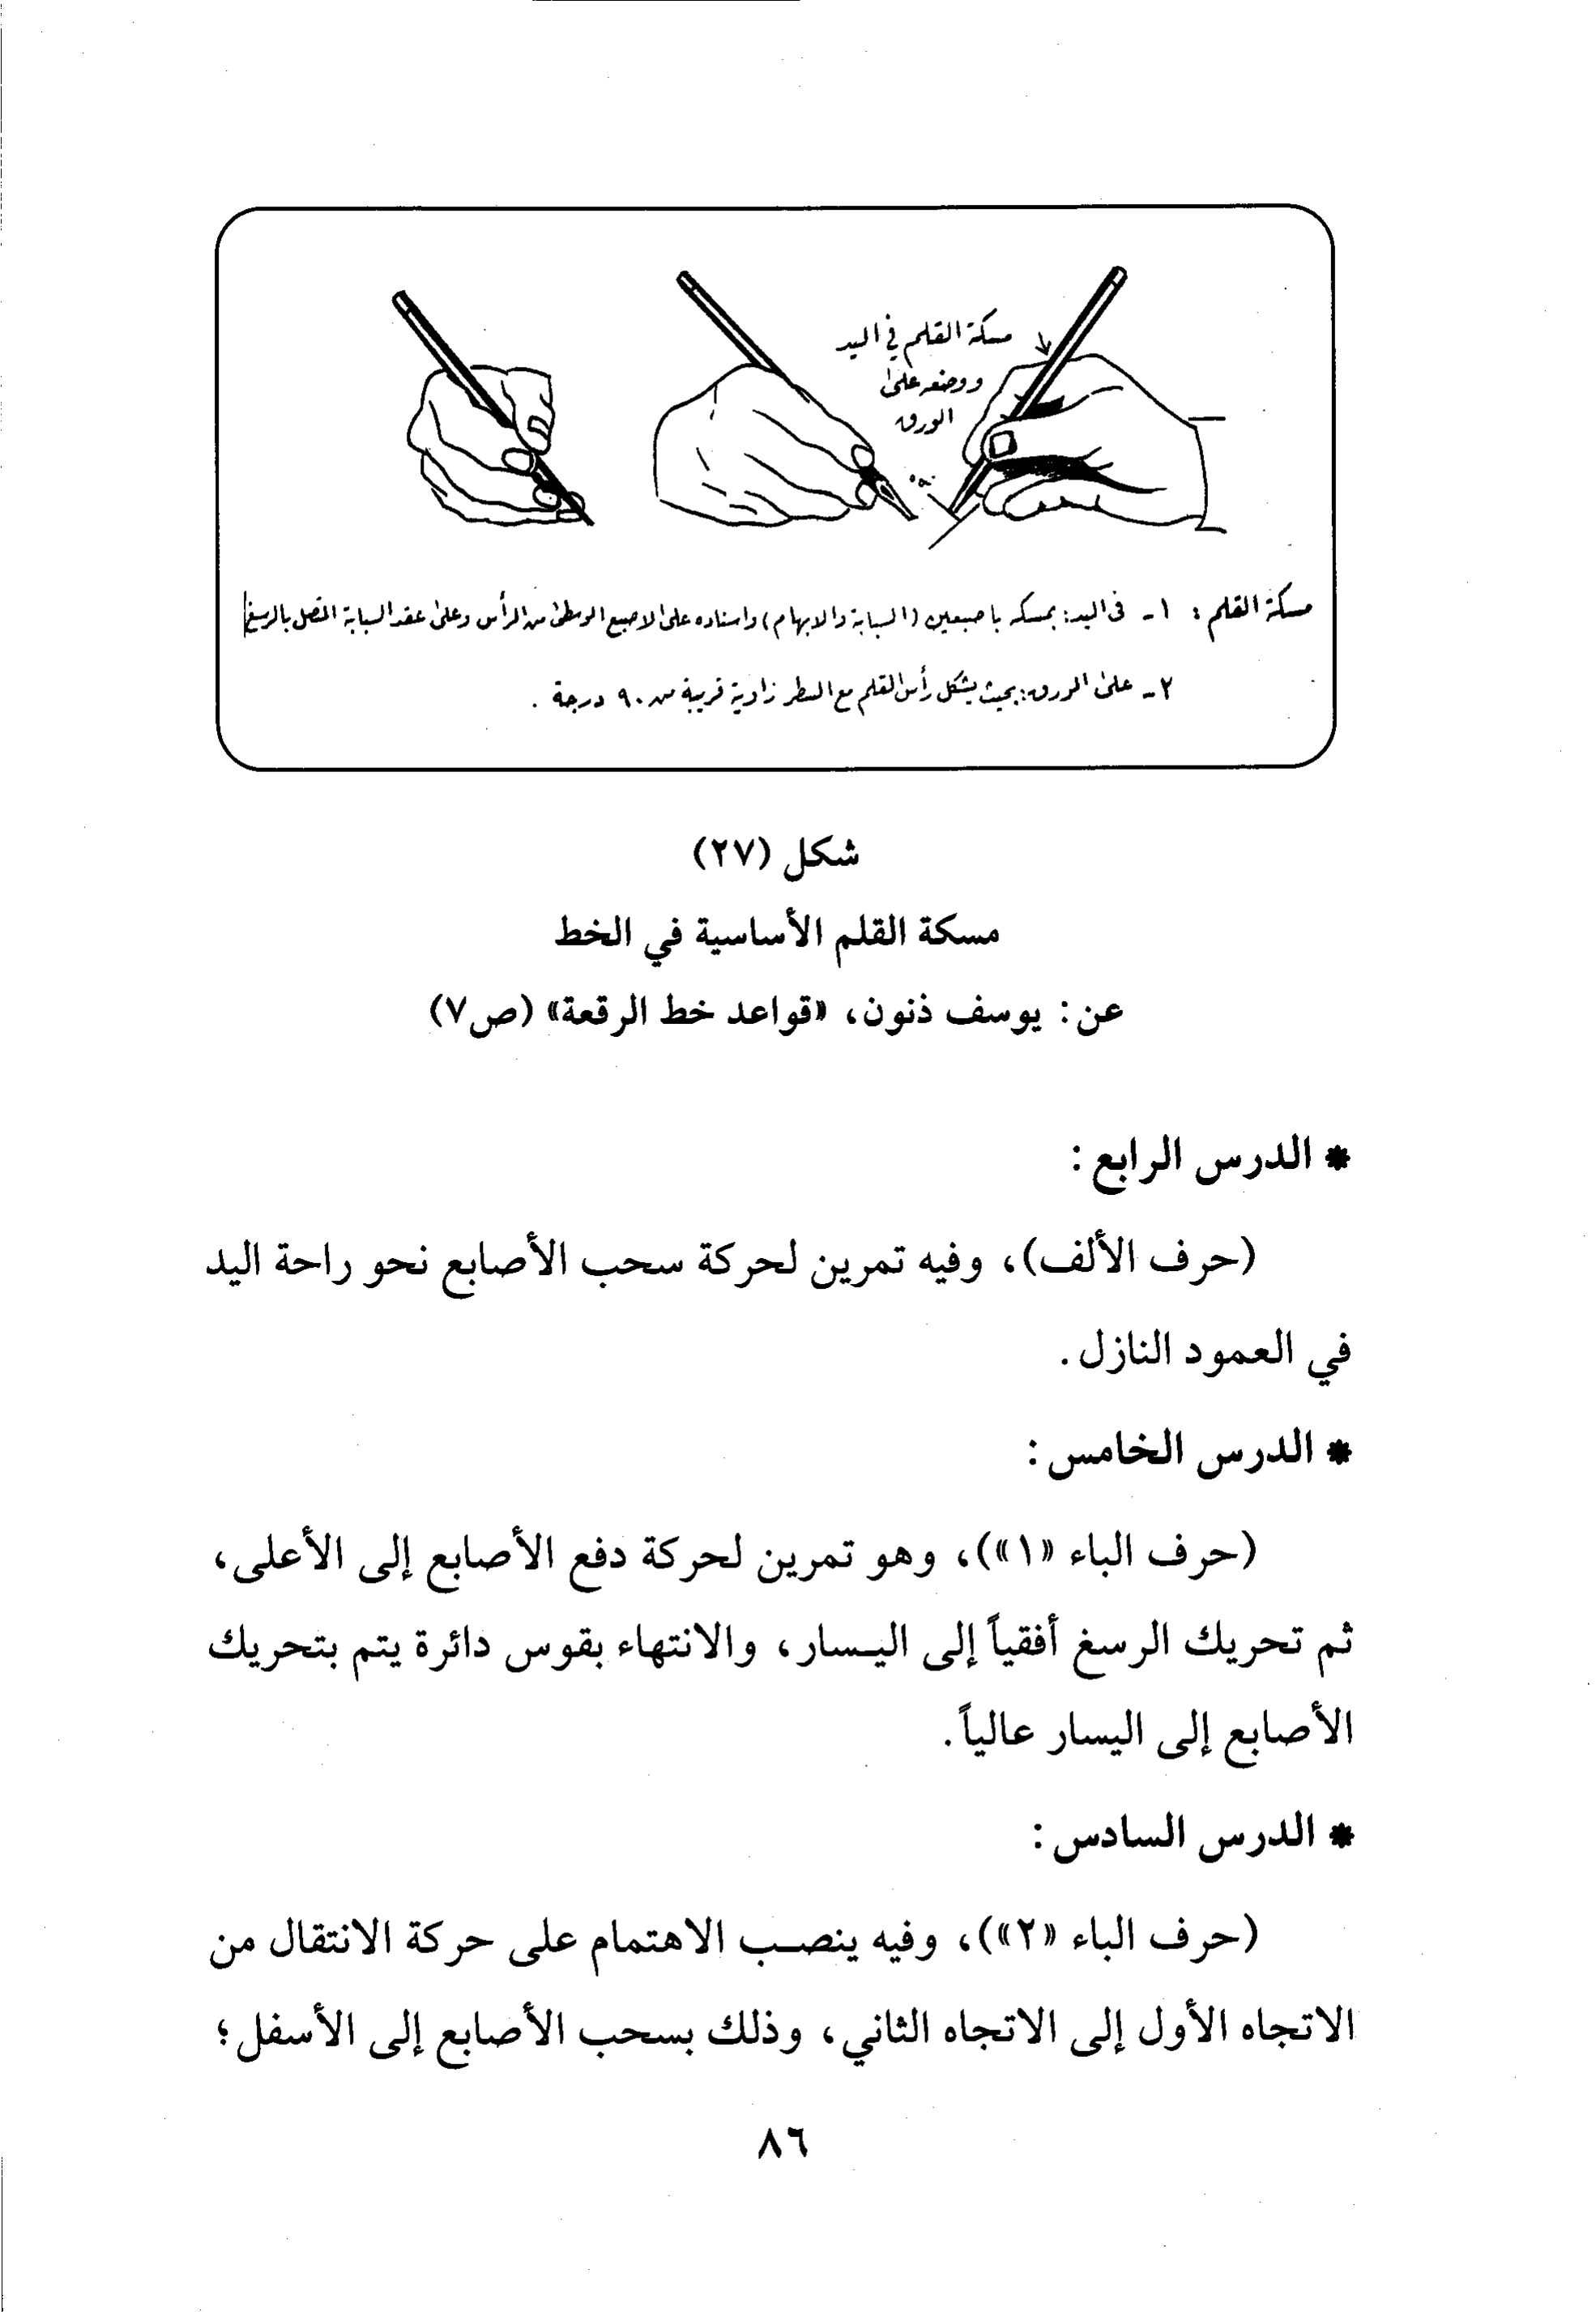 مسكة القلم في اليد
ووضعه على
الورق
٩٠°
مسكة القلم : ١- في اليد: بمسكه باصبعين (السبابة والابهام) واسناده على الاصبع الوسطى من الرأس وعلى عقد السبابة المتصل بالرسغ
٢- على الورق: بحيث يشكل رأس القلم مع السطر زاوية قريبة من ٩٠ درجة .
شكل (٢٧)
مسكة القلم الأساسية في الخط
عن: يوسف ذنون، «قواعد خط الرقعة» (ص٧)
* الدرس الرابع :
(حرف الألف)، وفيه تمرين لحركة سحب الأصابع نحو راحة اليد
في العمود النازل .
* الدرس الخامس :
(حرف الباء «١»)، وهو تمرين لحركة دفع الأصابع إلى الأعلى،
ثم تحريك الرسغ أفقياً إلى اليـسار، والانتهاء بقوس دائرة يتم بتحريك
الأصابع إلى اليسار عالياً.
* الدرس السادس :
(حرف الباء «٢»)، وفيه ينصـب الاهتمام على حركة الانتقال من
الاتجاه الأول إلى الاتجاه الثاني، وذلك بسحب الأصابع إلى الأسفل؛
٨٦